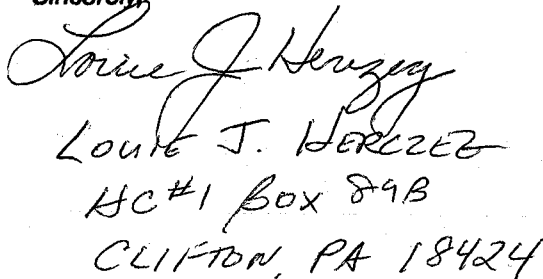 Sincerely,
Louie J Herczeg
LOUIE J. HERCZEG
HC#1 BOX 89B
CLIFTON, PA 18424